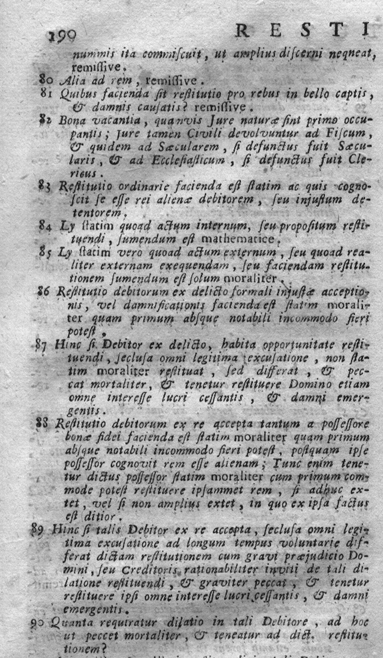 190 RESTI
nummis ita commiscuit, ut amplius discerni nequeat,
remissive.
80 Alia ad rem, remissive.
81 Quibus facienda sit restitutio pro rebus in bello captis,
& damnis causatis? remissive.
82 Bona vacantia, quanvis Jure naturæ sint primo occu-
pantis; jure tamen Civili devolvuntur ad Fiscum,
& quidem ad Sæcularem, si defunctus fuit Sæcu-
laris, & ad Ecclesiasticum, si defunctus fuit Cle-
ricus.
83 Restitutio ordinarie facienda est statim ac quis cogno-
scit se esse rei alienæ debitorem, seu injustum de-
tentorem.
84 Ly statim quoad actum internum, seu propositum resti-
tuendi, sumendum est mathematice.
85 Ly statim vero quoad actum externum, seu quoad rea-
liter externam exequendam, seu faciendam restitu-
tionem sumendum est solum moraliter.
86 Restitutio debitorum ex delicto formali injustæ acceptio-
nis, vel damnificationis facienda est statim morali-
ter quam primum absque notabili incommodo fieri
potest.
87 Hinc si Debitor ex delicto, habita opportunitate resti-
tuendi, seclusa omni legitima excusatione, non sta-
tim moraliter restituat, sed differat, & pec-
cat mortaliter, & tenetur restituere Domino etiam
omne interesse lucri cessantis, & damni emer-
gentis.
88 Restitutio debitorum ex re accepta tantum a possessore
bonæ fidei facienda est statim moraliter quam primum
absque notabili incommodo fieri potest, postquam ipse
possessor cognovit rem esse alienam; Tunc enim tene-
tur dictus possessor statim moraliter cum primum com-
mode potest restituere ipsammet rem, si adhuc ex-
tet, vel si non amplius extet, in quo ex ipsa factus
est ditior.
89 Hinc si talis Debitor ex re accepta, seclusa omni legi-
tima excusatione ad longum tempus voluntarie dif-
ferat dictam restitutionem cum gravi præjudicio Do-
mini, seu Creditoris rationabiliter inviti de tali di-
latione restituendi, & graviter peccat, & tenetur
restituere ipsi omne interesse lucri cessantis, & damni
emergentis.
90 Quanta requiratur dilatio in tali Debitore, ad hoc
ut peccet mortaliter, & teneatur ad dict. restitu-
tionem?